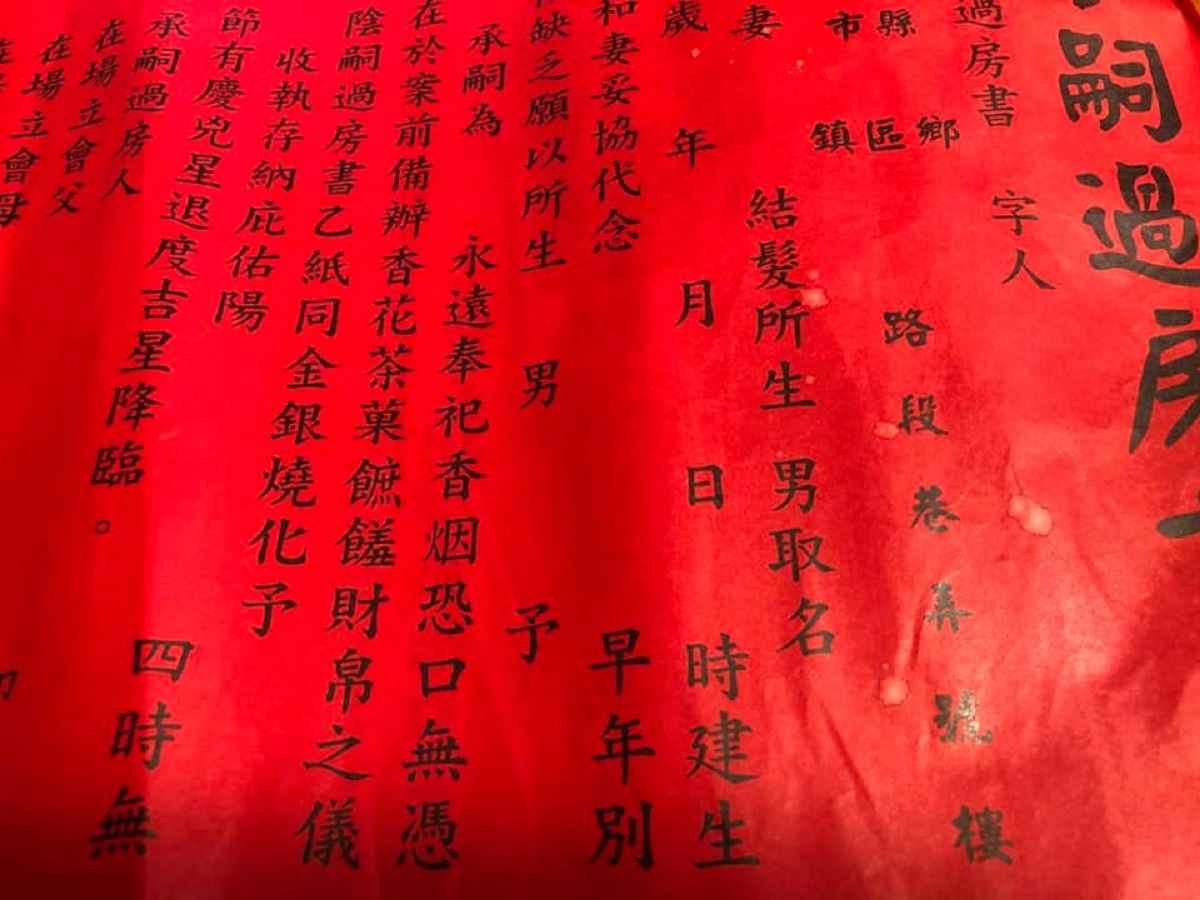 嗣過房
過房書 字人
縣 鄉
區
市 鎮
路 段 巷 弄 號 樓
妻 結髮所生 男取名
歲 年 月 日 時建生
和妻妥協代念 早年別
缺乏願以所生 男 予
承嗣為 永遠奉祀香烟恐口無憑
在於案前備辦香花茶菓饈財帛之儀
陰嗣過房書乙紙同金銀燒化予
收執存納庇佑陽 四時無
節有慶兇星退度吉星降臨。
承嗣過房人
在場立會父
在場立會母